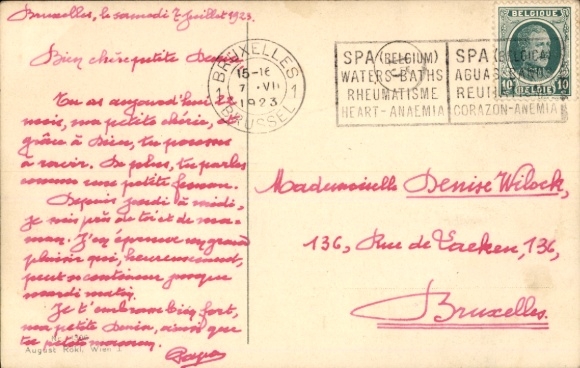 Bruxelles, le samedi 7 juillet 1923.
Bien chère petite Denise
Tu as aujourd'hui le
mois, ma petite chérie, et
grâce à Dieu, tu pousses
à ravir. De plus, tu parles
comme une petite femme.
Depuis jeudi à midi,
je suis près de toi et de ma-
man. J'en éprouve un grand
plaisir qui, heureusement,
peut se continuer jusque
mardi matin.
Je t'embrasse bien fort,
ma petite Denise, ainsi que
ta petite maman.
Papa
August Rökl, Wien
BRUXELLES
15-16
7 VII
1923
1 1
BRUSSEL
SPA (BELGIUM)
WATERS-BATHS
RHEUMATISME
HEART-ANAEMIA
SPA (BELGICA)
AGUAS
REUM
CORAZON-ANEMIA
BELGIQUE
10 10
BELGIË
Mademoiselle Denise Wilock,
136, Rue de Laeken, 136,
Bruxelles.